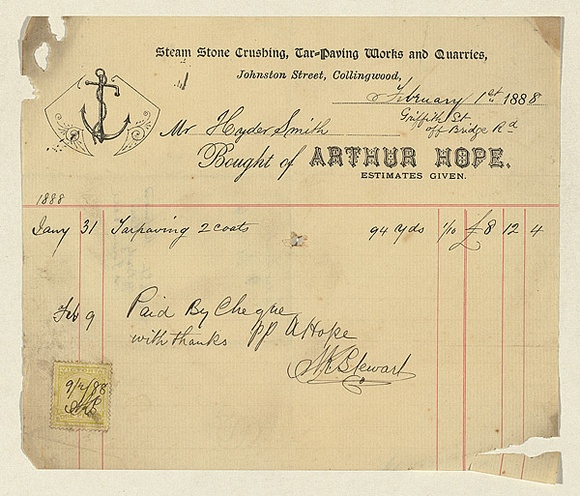 Steam Stone Crushing, Tar-Paving Works and Quarries,
Johnston Street, Collingwood,
February 1st 1888
Griffith St
off Bridge Rd
Mr Hyder Smith
Bought of ARTHUR HOPE.
ESTIMATES GIVEN.
1888
Jany 31 Tarpaving 2 coats 94 yds 1/10 £8 12 4
Feb 9 Paid By Cheque
with thanks pp A Hope
Stewart
9/2/88